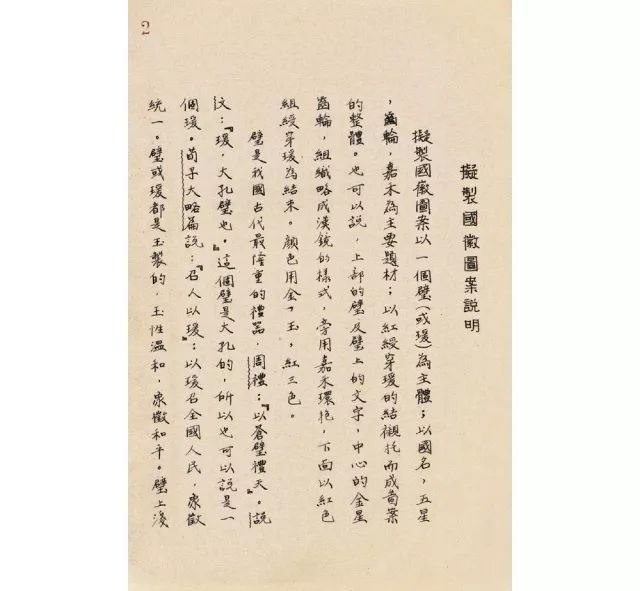 2
擬製國徽圖案説明
擬製國徽圖案以一個璧(或瑗)為主體;以國名,五星
,齒輪,嘉禾為主要題材;以紅綬穿瑗的結襯托而成圖案
的整體。也可以説,上部的璧及璧上的文字,中心的金星
齒輪,組織略成漢鏡的樣式,旁用嘉禾環抱,下面以紅色
組綬穿瑗為結束。顏色用金,玉,紅三色。
璧是我國古代最隆重的禮器,周禮:『以蒼璧禮天。』説
文:『瑗,大孔璧也。』這個璧是大孔的,所以也可以説是一
個瑗。荀子大略篇説:『召人以瑗』;以瑗召全國人民,象徵
統一。璧或瑗都是玉製的,玉性溫和,象徵和平。璧上淺